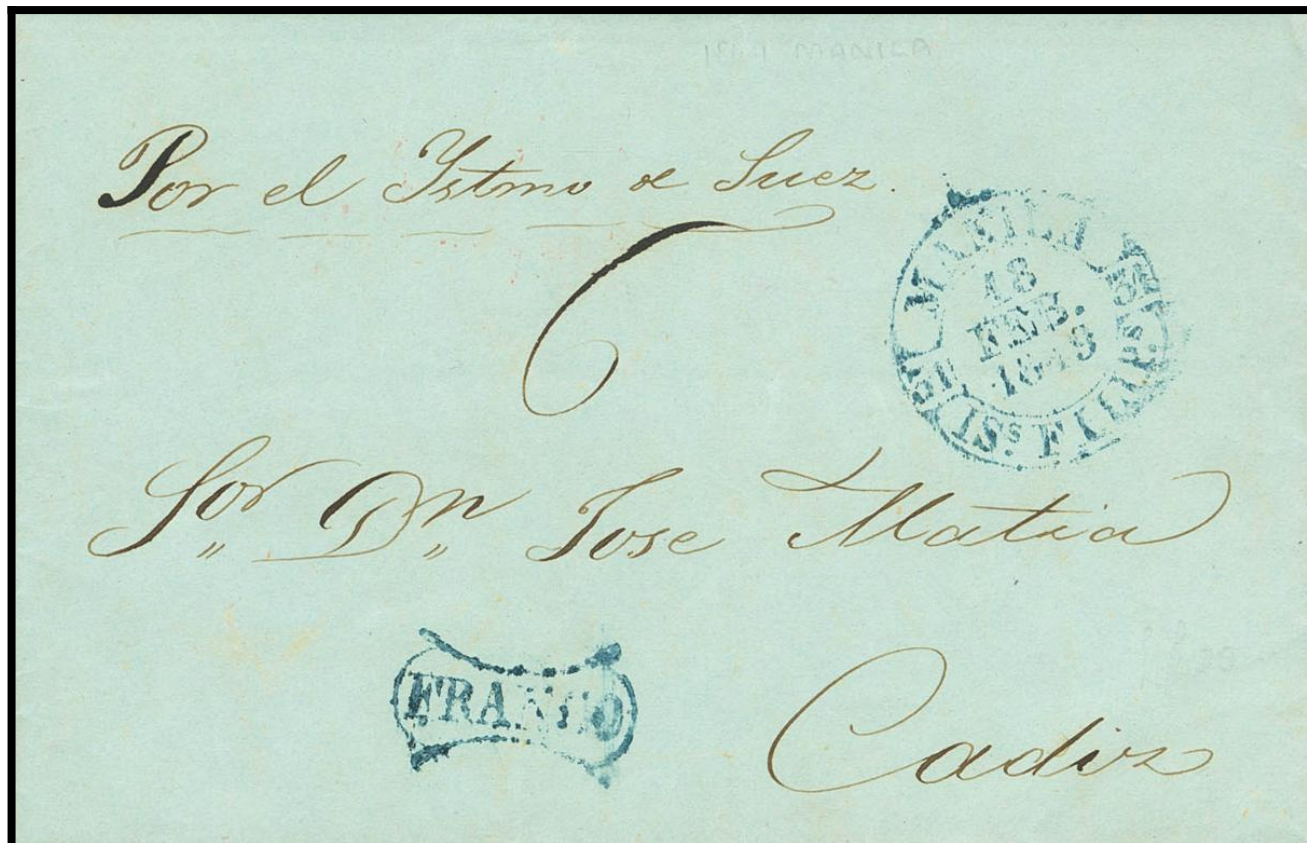 MANILA
Por el Ystmo de Suez.
MANILA
18
FEB.
1848
YSLS. FILIPS.
Sor Dn Jose Matia
FRANCO
Cadiz